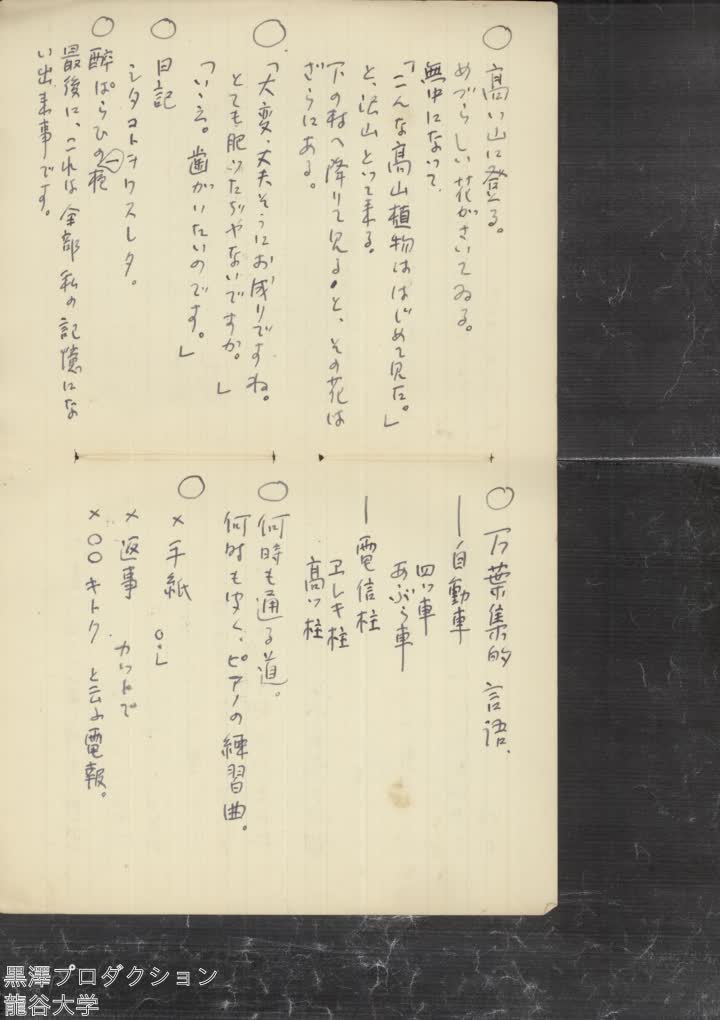 ○ 高い山に登る。
めづらしい花がさいてゐる。
無中になつて、
「こんな高山植物ははじめて見た。」
と、沢山とつて来る。
下の村へ降りて見ると、その花は
ざらにある。
○
「大変、丈夫そうにお成りですね。
とても肥つたぢやないですか。」
「いゝえ。歯がいたいのです。」
○ 日記
シタコトヲワスレタ。
○ 酔ぱらひの
最後に、これは全部私の記憶にな
い出来事です。
○ 万葉集的言語、
｜自動車
四ツ車
あぶら車
｜電信柱
ヱレキ柱
高ツ柱
○ 何時も通る道。
何時も聞く、ピアノの練習曲。
○
× 手紙
× 返事 カットで
× ○○キトク と云ふ電報。
黒澤プロダクション
龍谷大学